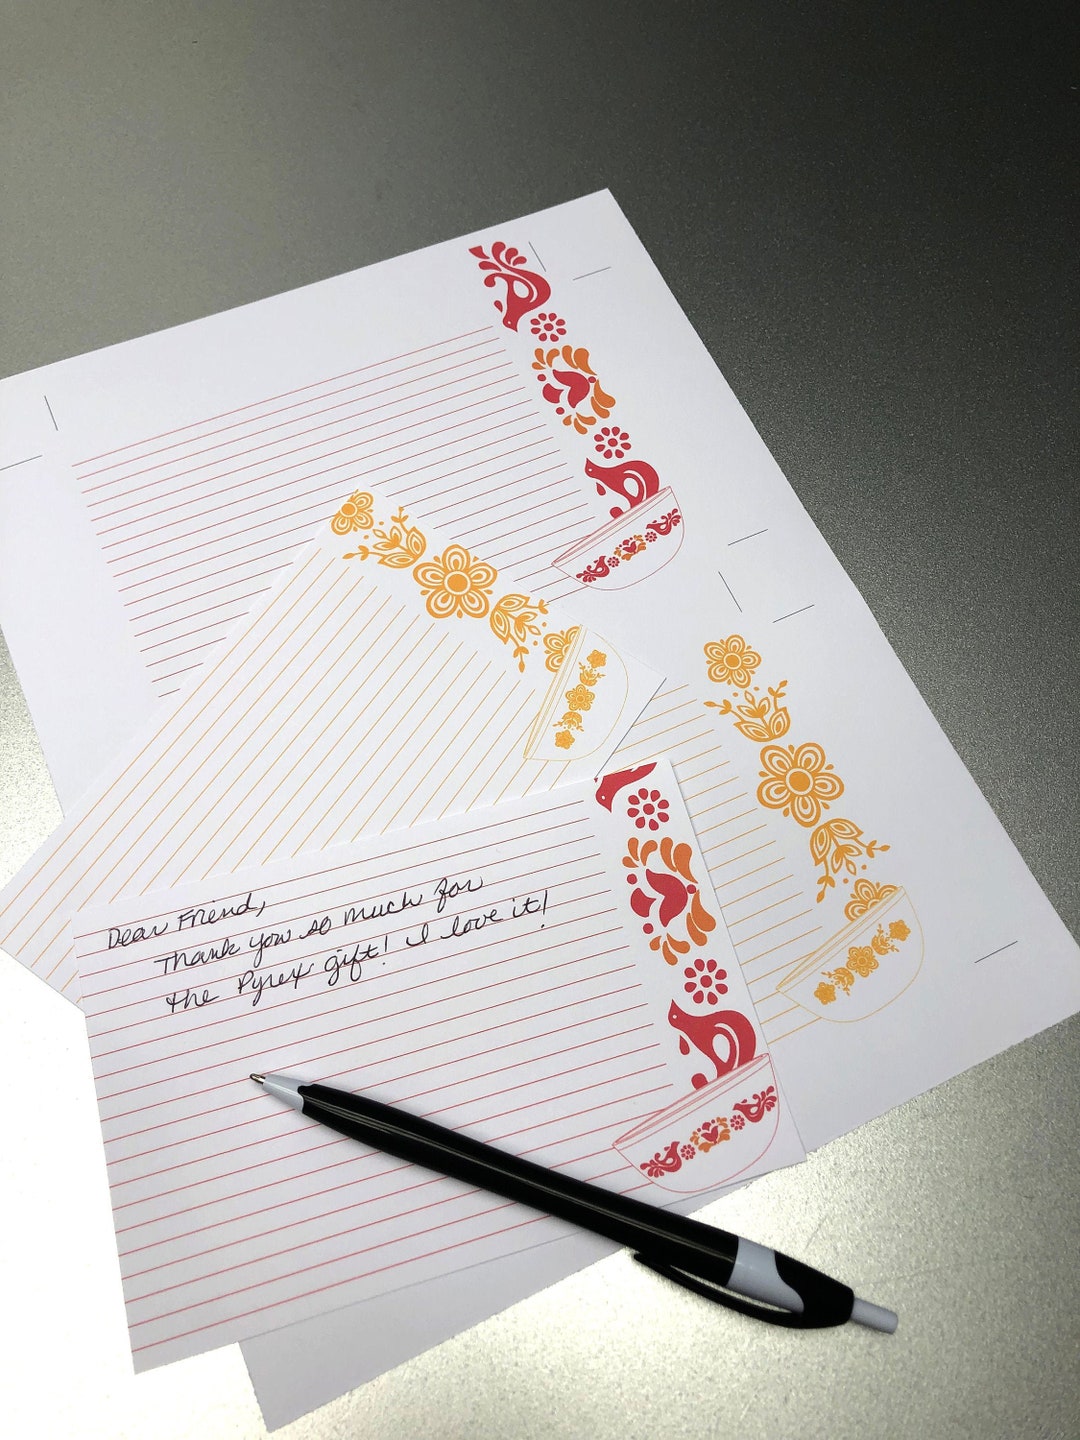 Dear Friend,
Thank you so much for
the Pyrex gift! I love it!